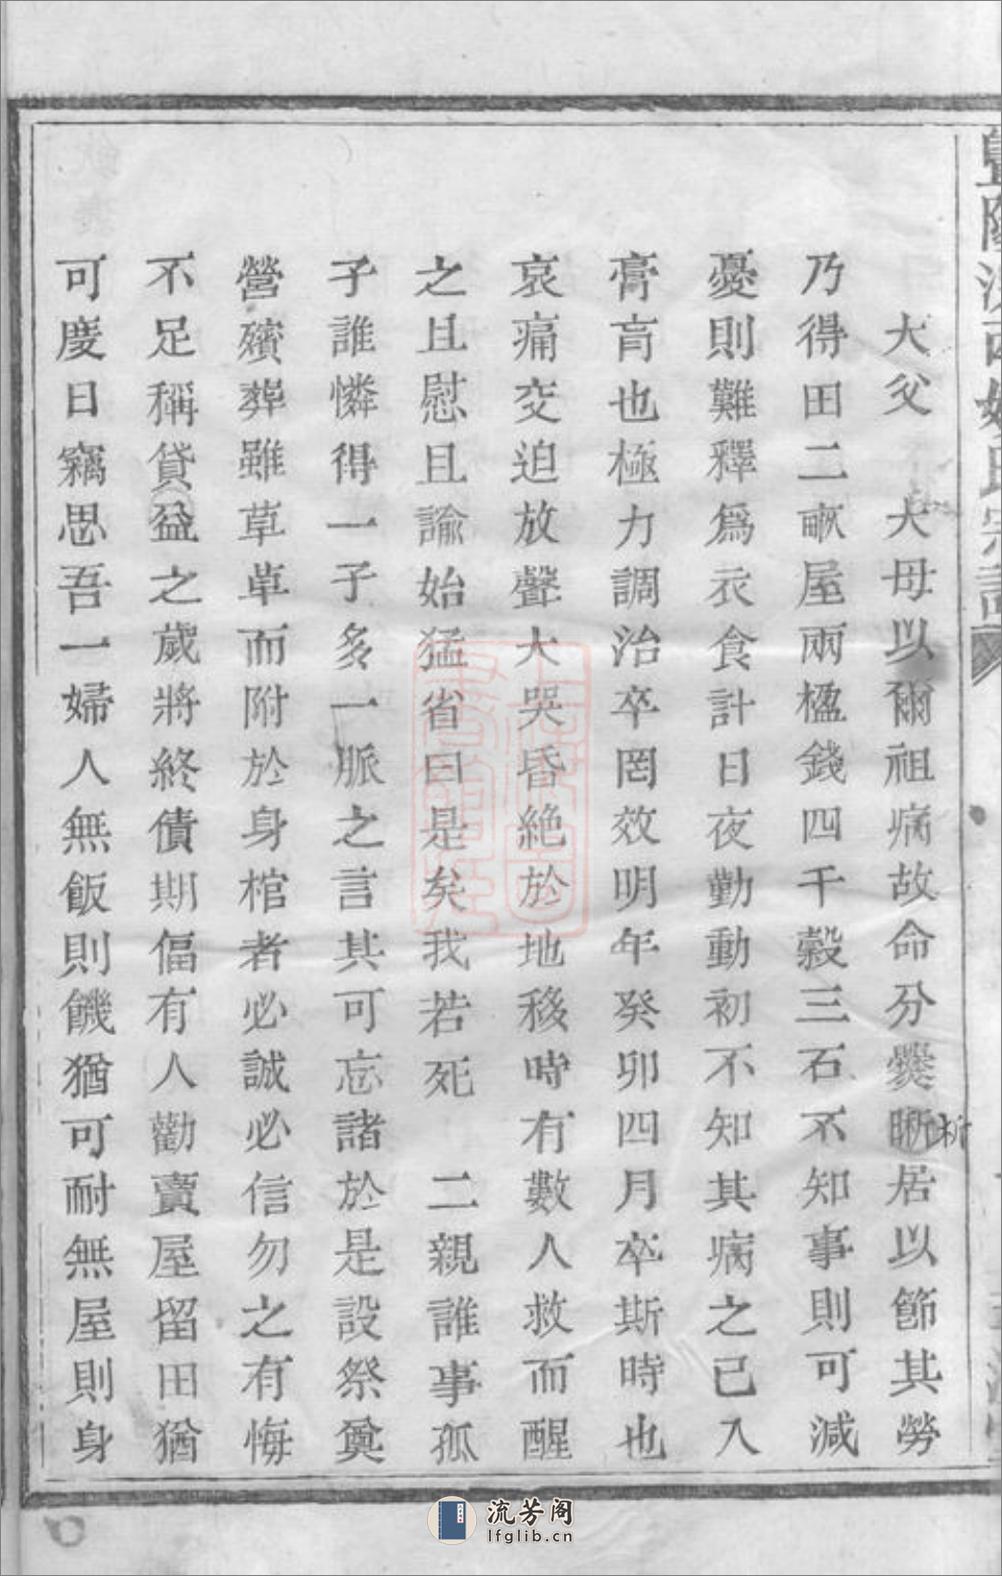 大父　大母以爾祖病故命分爨晣析居以節其勞
乃得田二畝屋兩楹錢四千穀三石不知事則可減
憂則難釋爲衣食計日夜勤動初不知其病之已入
膏肓也極力調治卒罔效明年癸卯四月卒斯時也
哀痛交迫放聲大哭昏絶於地移時有數人救而醒
之且慰且諭始猛省曰是矣我若死　二親誰事孤
子誰憐得一子多一脈之言其可忘諸於是設祭奠
營殯葬雖草草而附於身棺者必誠必信勿之有悔
不足稱貸益之歲將終債期偪有人勸賣屋留田猶
可慶日竊思吾一婦人無飯則饑猶可耐無屋則身
流芳阁
lfglib.cn